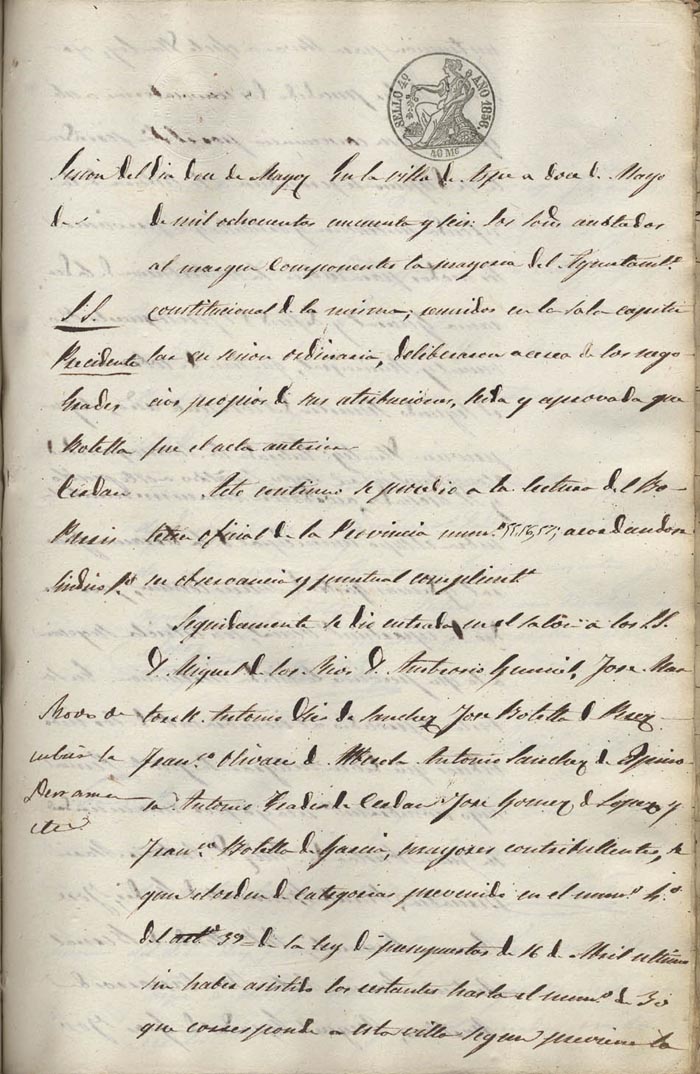 SELLO 4º AÑO 1856.
40 Ms
Sesion del dia doce de Mayo
de
SS.
Precidente
Botella
Cerdan
Sindico Pº
Modo de
cubrir la
Derrama
etc.
En la villa de Aspe a doce de Mayo
de mil ochocientos cincuenta y seis: los Sores anotados
al margen componentes la mayoria del Ayuntamtº
constitucional de la misma; reunidos en la sala capitu
lar en sesion ordinaria, deliberaron acerca de los nego
cios propios de sus atribuciones, leida y aprovada que
fue el acta anterior
Acto continuo se procedio a la lectura del Bo
letin oficial de la Provincia numº 55, 56, 57; acordandose
su observancia y puntual complimtº
Seguidamente se dio entrada en el salon a los SS.
D. Miguel de los Rios D. Ambrosio Jose
Antonio de Sanchez Jose Botella de Perez
Franco Olivares de Antonio Sanchez de Espino
sa Antonio de Cerdan Jose Gomez de Lopez y
Franco Botella de Garcia, mayores contribullentes, 
que el orden de categorias prevenido en el numº 4º
del artº 39 de la ley de presupuestos de 16 de Abril ultimo
sin haber asistido los restantes hasta el numº de 30
que corresponde a esta villa segun previene la